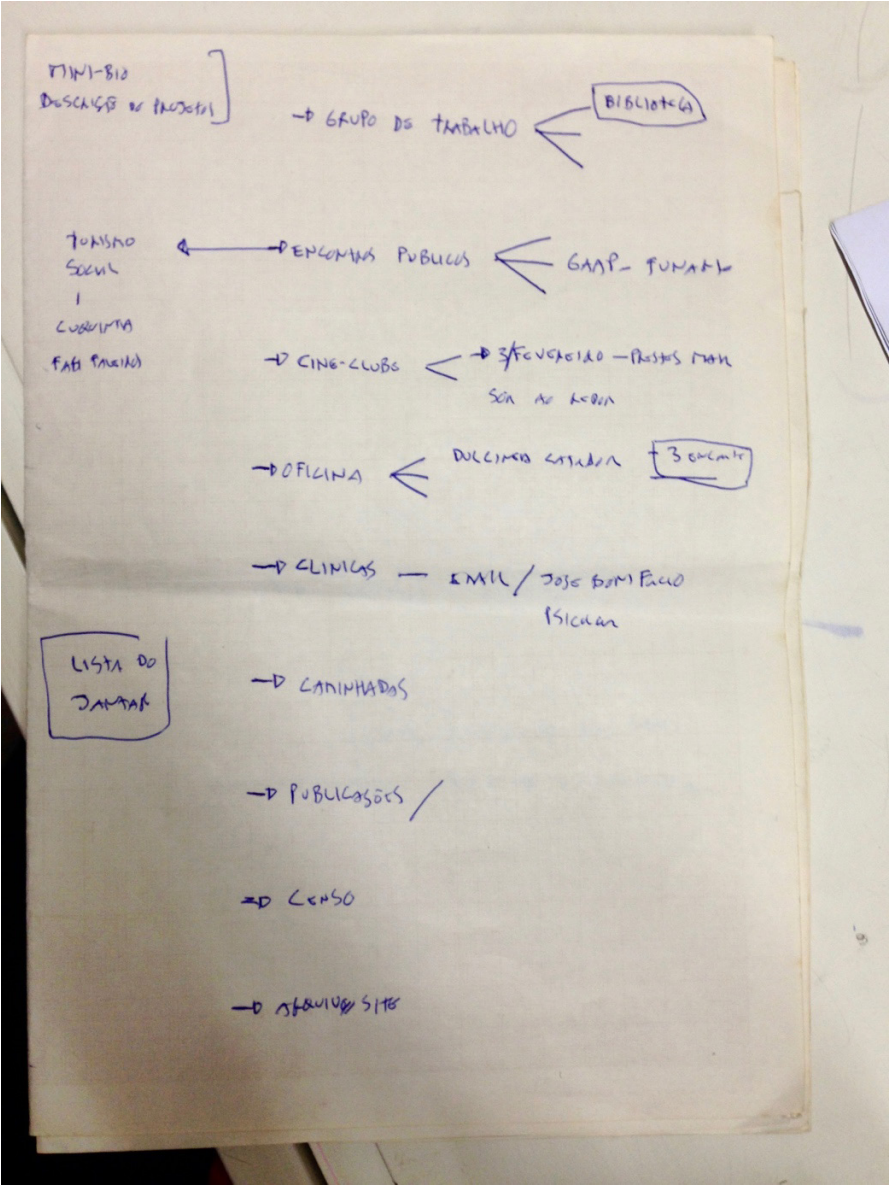 MINI-BIO
DESCRIÇÃO DE PROJETOS
→ GRUPO DE TRABALHO
BIBLIOTECA
TURISMO
SOCIAL
→ ENCONTROS PUBLICOS
GAAP - FUNARTE
→ CINE-CLUBE
→ 3/FEVEREIRO — PRESTES MAIA
SOM AO REDOR
→ OFICINA
DULCINEIA CATADORA
3
→ CLINICAS — EMAIL / JOSE BONIFACIO
LISTA DO
JANTAR
→ CAMINHADAS
→ PUBLICAÇÕES /
→ CENSO
→ SITE